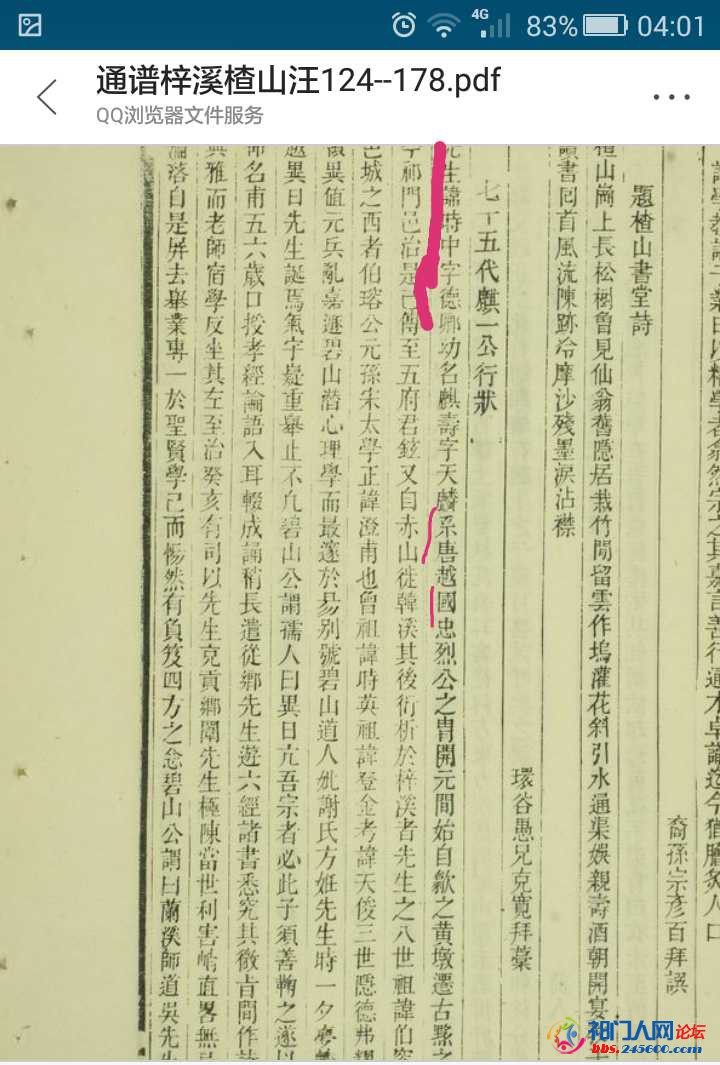 4G
83%
04:01
通谱梓溪楂山汪124--178.pdf
QQ浏览器文件服务
裔孫宗彥百拜譔
題楂山書堂詩
楂山崗上長松樹曾見仙翁舊隱居栽竹閒留雲作塢灌花斜引水通渠娛親壽酒朝開宴
讀書回首風流陳跡冷摩沙殘墨淚沾襟
環谷愚兄克寬拜藁
七十五代麒一公行狀
先生諱時中字德卿幼名麒壽字天麟系唐越國忠烈公之胄開元間始自歙之黃墩遷古黟之
祁門邑治是已傳至五府君鉉又自赤山徙韓溪其後衍析於梓溪者先生之八世祖諱伯
邑城之西者伯瑢公元孫宋太學正諱澄甫也曾祖諱時英祖諱登金考諱天俊三世隱德弗
異值元兵亂嘉遯碧山潛心理學而最邃於易別號碧山道人妣謝氏方姙先生時一夕夢
越異日先生誕焉氣宇嶷重舉止不凡碧山公謂孺人曰異日亢吾宗者必此子須善鞠之遂以
命名甫五六歲口授孝經論語入耳輟成誦稍長遣從鄉先生遊六經諸書悉究其微旨間作
典雅而老師宿學反坐其左至治癸亥有司以先生克貢鄉闈先生極陳當世利害崅直畧無
落自是屏去舉業專一於聖賢學己而惕然有負笈四方之念碧山公謂曰蘭溪師道吳先
祁门人网论坛
bbs.245600.com